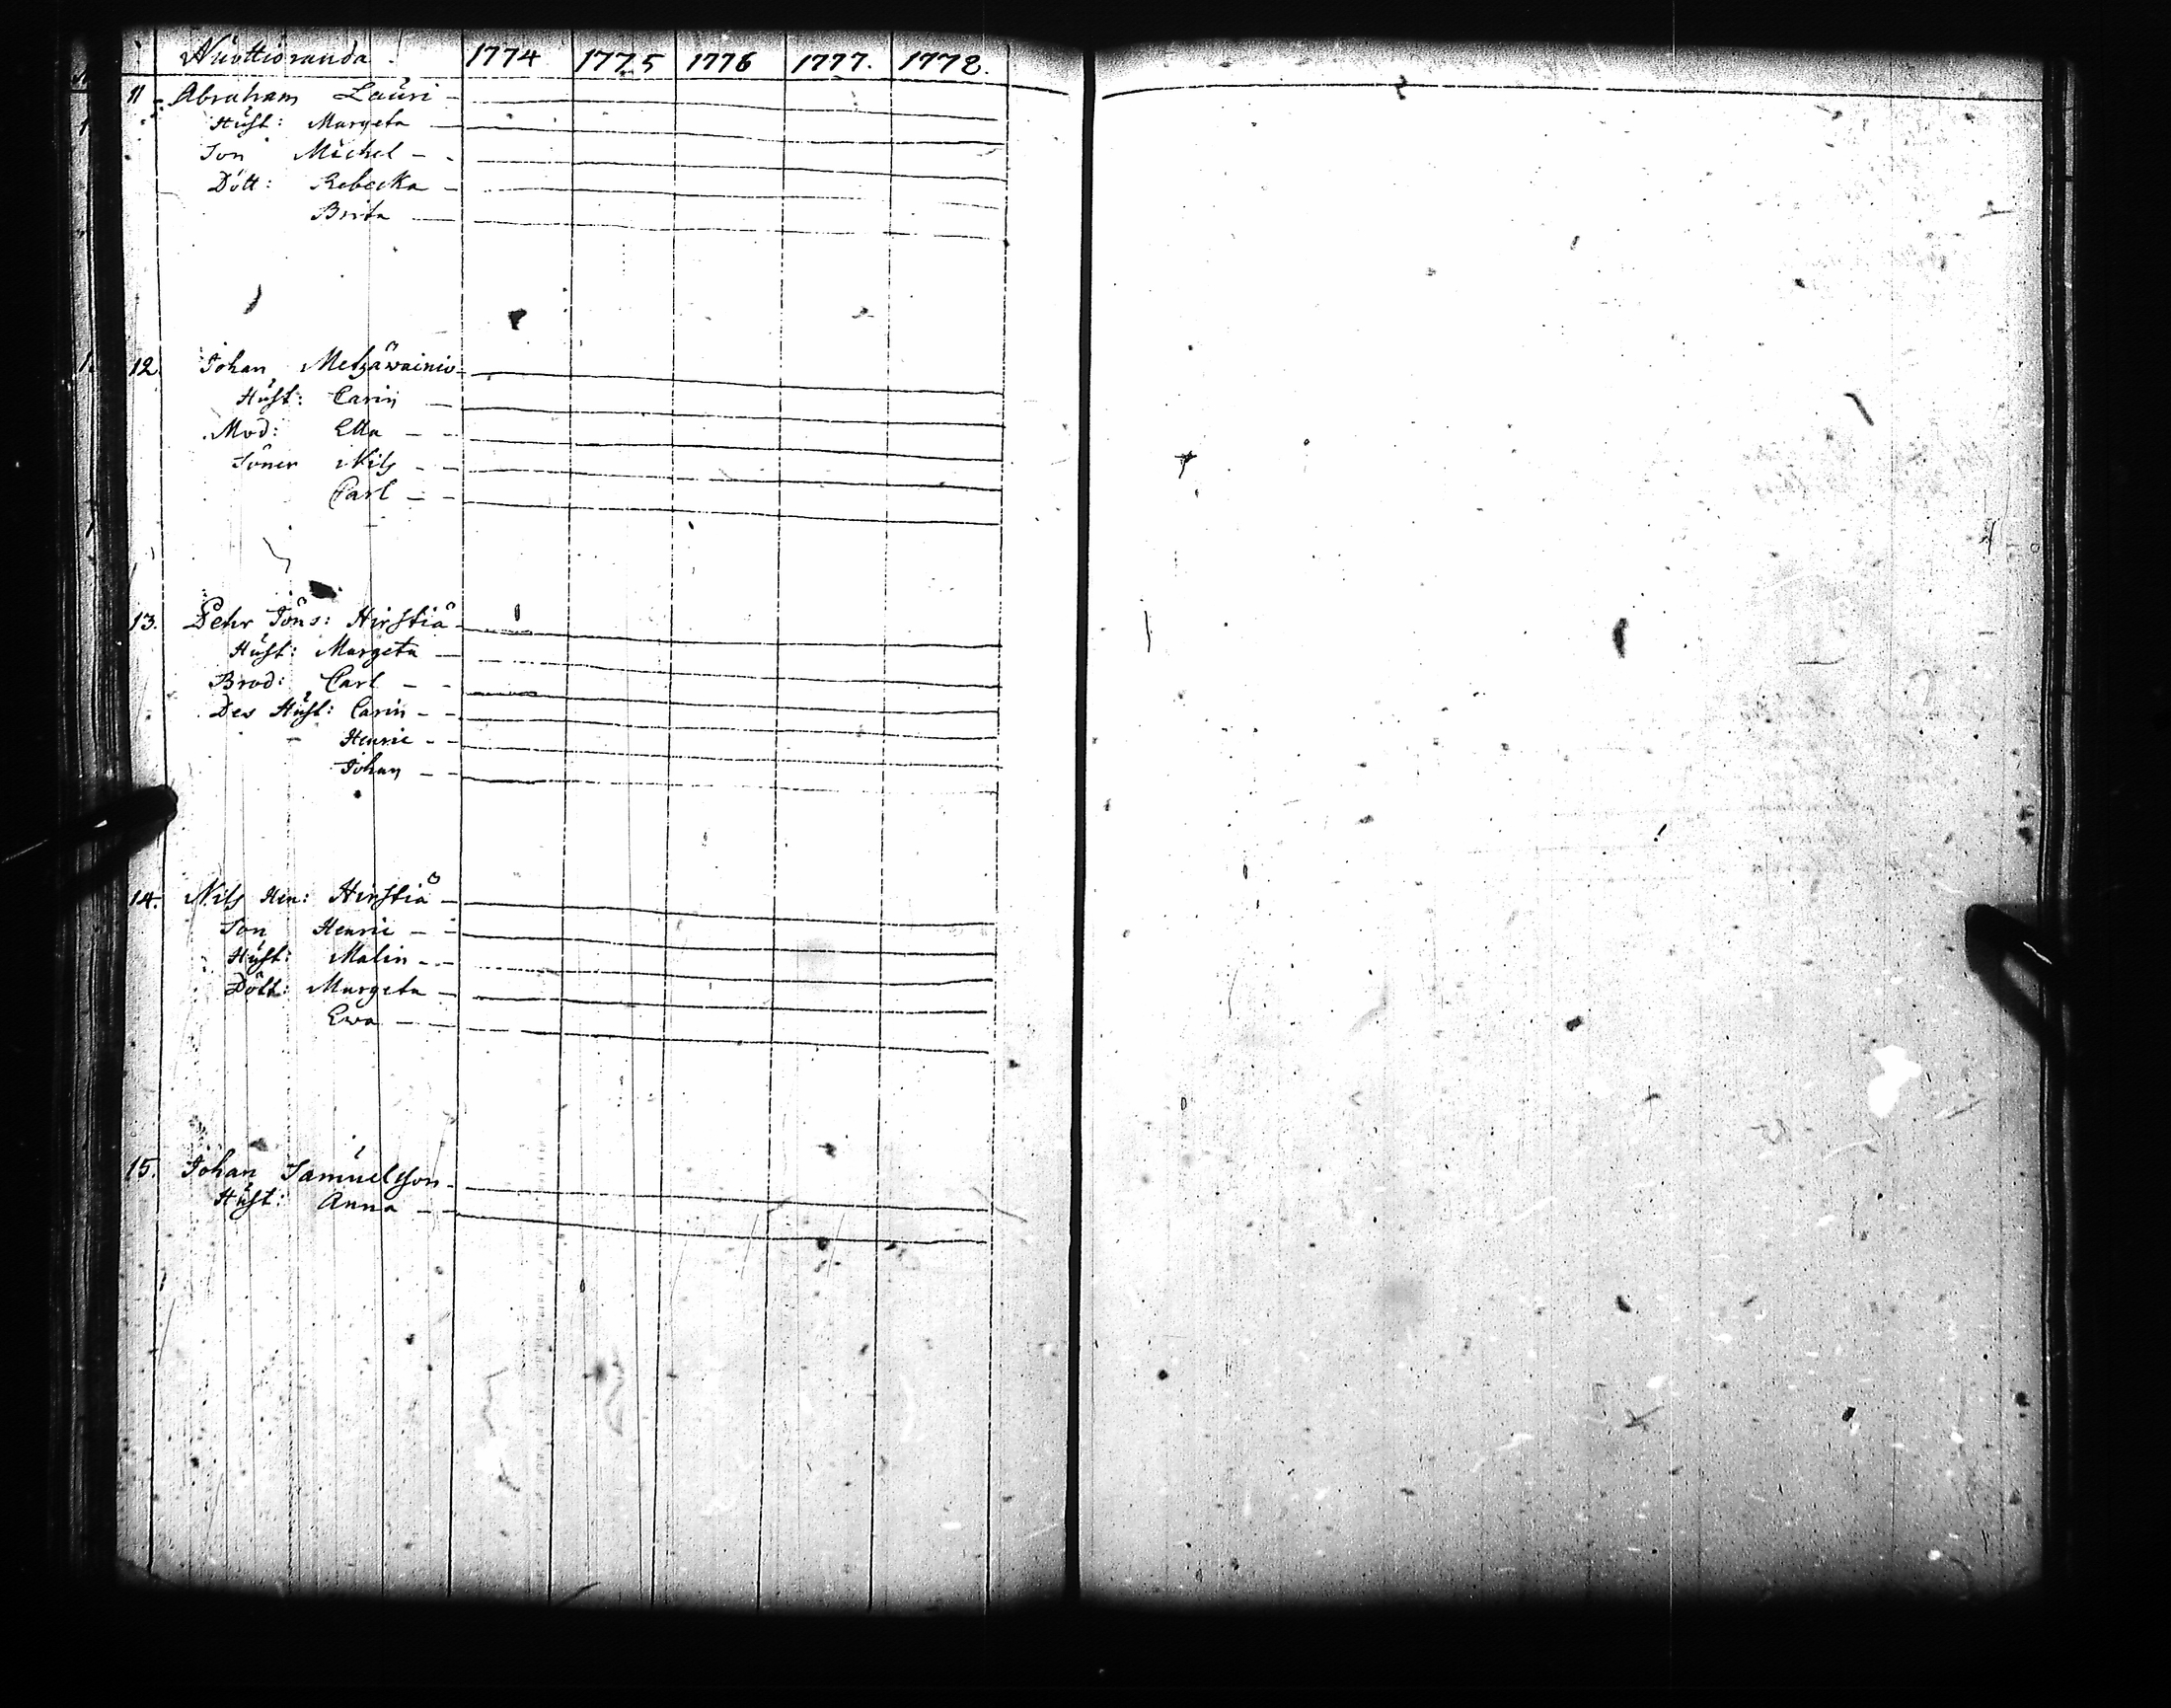 Nuottioranda. 1774 1775 1776 1777. 1778.
11 Abraham Lauri
Hust: Margeta
Son Michel
Dött: Rebecka
Brita
12. Johan Metzäwainio
Hust: Carin
Mod: Ella
Söner Nils
Carl
13. Pehr Jöns: Hirstiö
Hust: Margeta
Brod: Carl
Des Hust: Carin
Henric
Johan
14. Nils Hen: Hirstiö
Son Henric
Hust: Malin
Dött: Margeta
Ewa
15. Johan Samuelsson
Hust: Anna